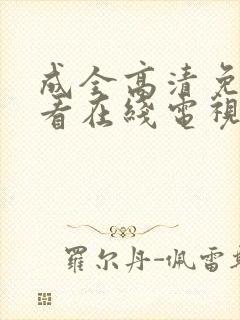 成全高清免
看在綫電視
羅尔丹-佩雷